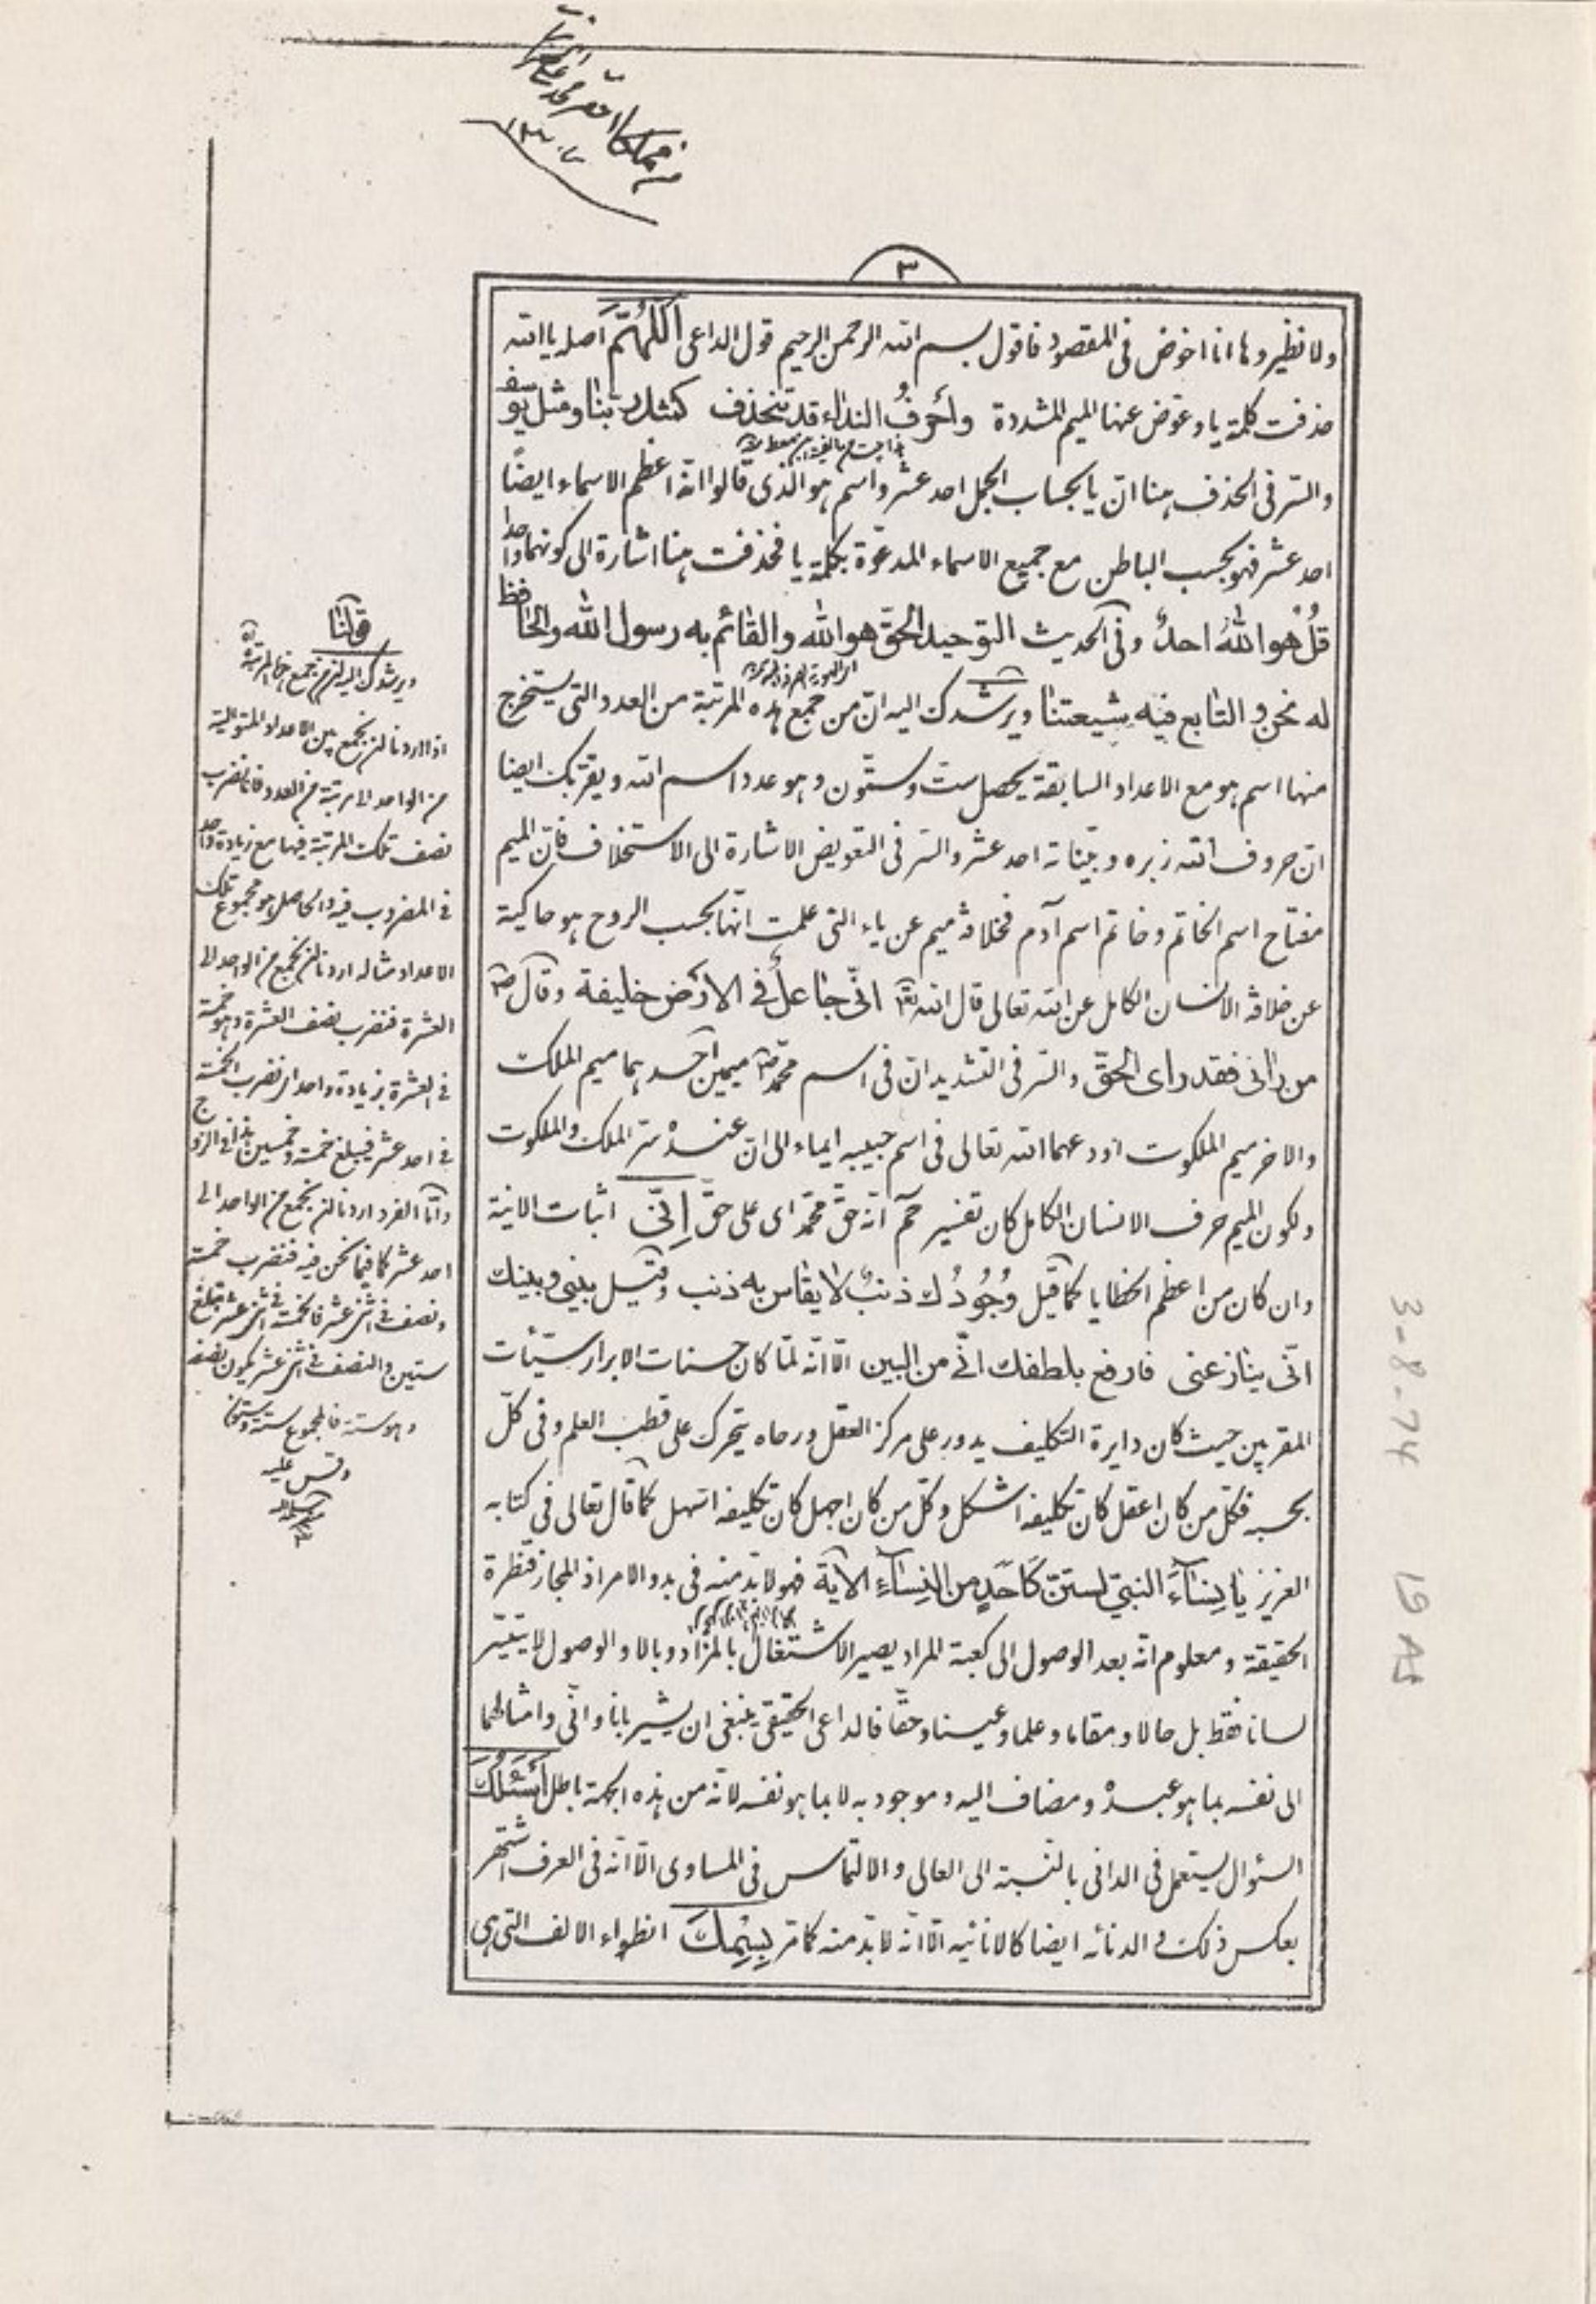 ٣
ولا نظير وها انا اخوض فى المقصود فاقول بسم الله الرحمن الرحيم قول الداعى اَللّهُمَّ اصله يا الله
حذفت كلمة يا وعوّض عنها الميم المشددة واَحرفُ النداء قد تنحذف كمثل ربّنا ومثل يوسف
والسّر فى الحذف هنا انّ يا بحساب الجمل احد عشر واسم هو الّذى قالوا انّه اعظم الاسماء ايضًا
احد عشر فهو بحسب الباطن مع جميع الاسماء المدعوّة بكلمة يا فحذفت هنا اشارة الى كونهما واحدا
قُلْ هو اللهُ احدٌ وفى الحديث التوحيد الحقّ هو الله والقائم به رسول الله والحافظ
له نحن والتابع فيه شيعتنا ويرشدك اليه انّ من جمع هذه المرتبة من العدد التى يستخرج
منها اسم هو مع الاعداد السابقة يحصل ستّ وستّون وهو عدد اسم الله ويقرّبك ايضا
انّ حروف الله زبره وبيّناته احد عشر والسّر فى التعويض الاشارة الى الاستخلاف فانّ الميم
مفتاح اسم الخاتم وخاتم اسم آدم فخلافة ميم عن ياء التى علمت انّها بحسب الروح هو حاكية
عن خلافة الانسان الكامل عن الله تعالى قال الله تعالى انّى جاعلٌ فى الارض خليفة وقال ص
من رانى فقد راى الحقّ والسّر فى التشديد انّ فى اسم محمّد ص ميمين احدهما ميم الملك
والاخر ميم الملكوت اودعهما الله تعالى فى اسم حبيبه ايماء الى انّ عنده سرّ الملك والملكوت
ولكون الميم حرف الانسان الكامل كان تفسير حم انّه حقّ محمّد اى على حقّ اِنّى اثبات الانية
وان كان من اعظم الخطايا كما قيل وُجُودُك ذنبٌ لا يقاس به ذنب وقيل بينى وبينك
انّى ينازعنى فارفع بلطفك انّى من البين الّا انّه لمّا كان حسنات الابرار سيّئات
المقربين حيث كان دايرة التكليف يدور على مركز العقل ورحاه يتحرك على قطب العلم وفى كلّ
بحسبه فكلّ من كان اعقل كان تكليفه اشكل وكلّ من كان اجهل كان تكليفه اسهل كما قال تعالى فى كتابه
العزيز يا نِساءَ النبىّ لستنّ كَاَحَدٍ من النِساءِ الآية فهو لابدّ منه فى بدو الامر اذ المجاز قنطرة
الحقيقة ومعلوم انّه بعد الوصول الى كعبة المراد يصير الاشتغال بالمزاد وبالا والوصول لا يتيسّر
لسانا فقط بل حالا ومقاما وعلما وعينا وحقّا فالداعى الحقيقى ينبغى ان يشير بانا وانّى وامثالهما
الى نفسه بما هو عبده ومضاف اليه وموجود به لا بما هو نفسه لانّه من هذه الجهة باطل اَسْئَلُكَ
السّؤال يستعمل فى الدانى بالنّسبة الى العالى والالتماس فى المساوى الّا انّه فى العرف اشتهر
بعكس ذلك والدنائه ايضا كالانانيّه الّا انّه لابدّ منه كما مرّ بِسْمِكَ انطواء الالف التى هى
قولنا
ويرشدك اليه انّ من جمع هذا المرتبة
اذا اردنا ان نجمع بين الاعداد المتوالية
من الواحد الى مرتبة من العدد فانا نضرب
نصف تلك المرتبة فيها مع زيادة واحد
فى المضروب فيه والحاصل هو مجموع تلك
الاعداد مثاله اردنا ان نجمع من الواحد الى
العشرة فنضرب نصف العشرة وهو خمسة
فى العشرة بزيادة واحد اى نضرب الخمسة
فى احد عشر فيبلغ خمسة وخمسين هذا فى الزوج
وامّا الفرد اردنا ان نجمع من الواحد الى
احد عشر كما فيما نحن فيه فنضرب خمسة
ونصف فى اثنى عشر فالخمسة فى اثنى عشر تبلغ
ستين والنصف فى اثنى عشر يكون نصفه
وهو ستة فالمجموع ستة وستون
وقس عليه
3-8-74